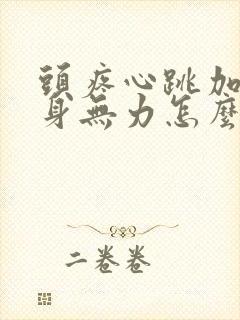 頭疼心跳加
身無力怎麼
二卷卷